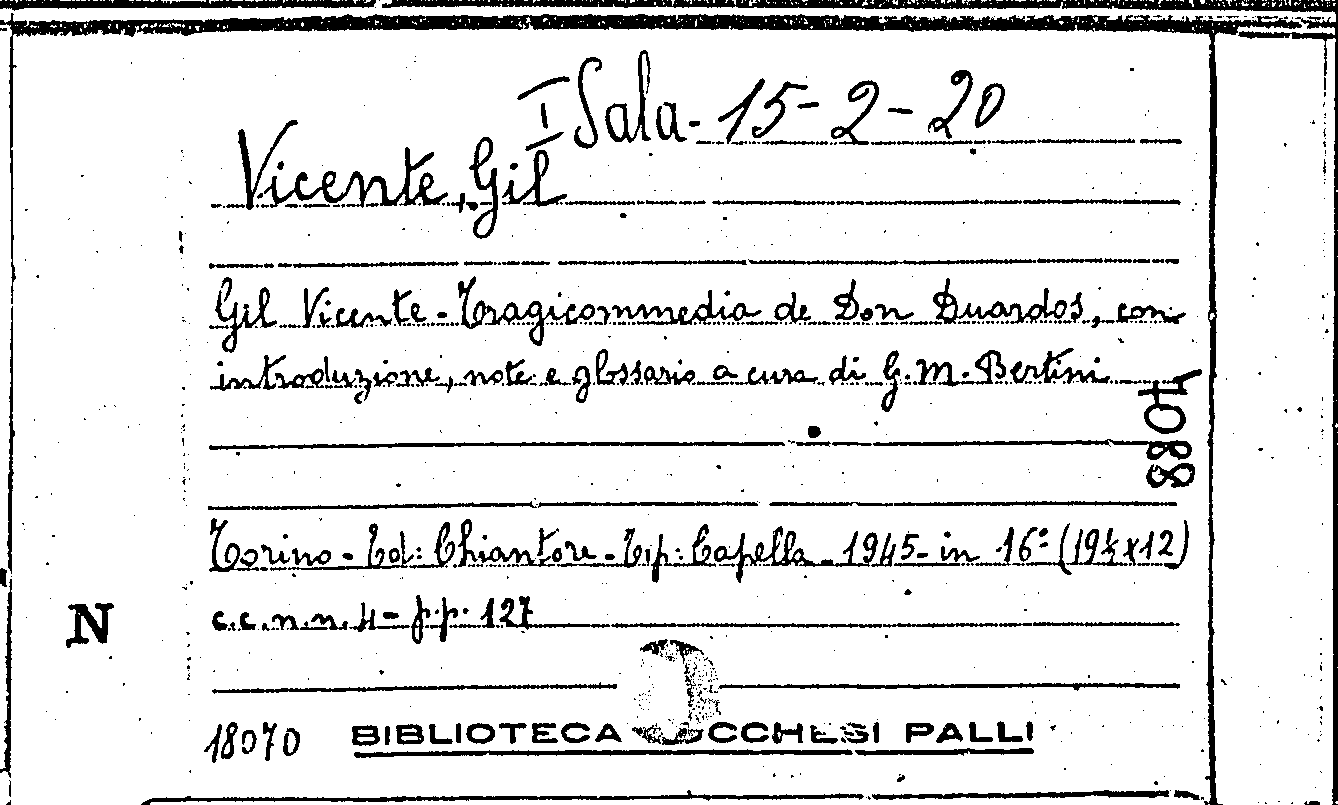 I Sala - 15 - 2 - 20
Vicente, Gil
Gil Vicente - Tragicommedia de Don Duardos, con
introduzione, note e glossario a cura di G. M. Bertini
4088
Torino - Ed: Chiantore - Tip: Capella - 1945 - in 16° (19½x12)
c.c.n.n. 4 - p.p. 127
N
18070 BIBLIOTECA CCHESI PALLI